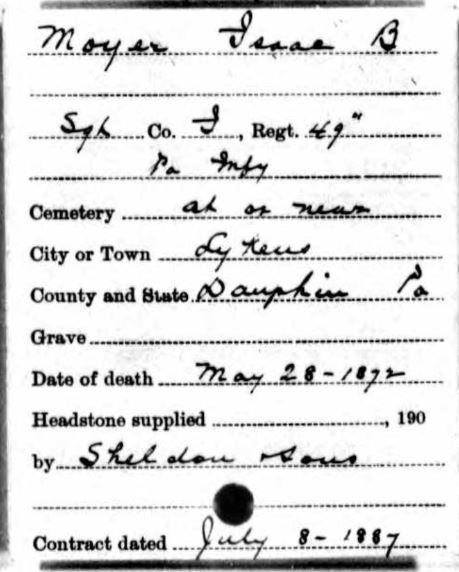 Moyer Isaac B
Sgt Co. I, Regt. 49"
Pa Infy
Cemetery at or near
City or Town Lykens
County and State Dauphin Pa
Grave
Date of death May 28-1872
Headstone supplied , 190
by Sheldon & Sons
Contract dated July 8-1887